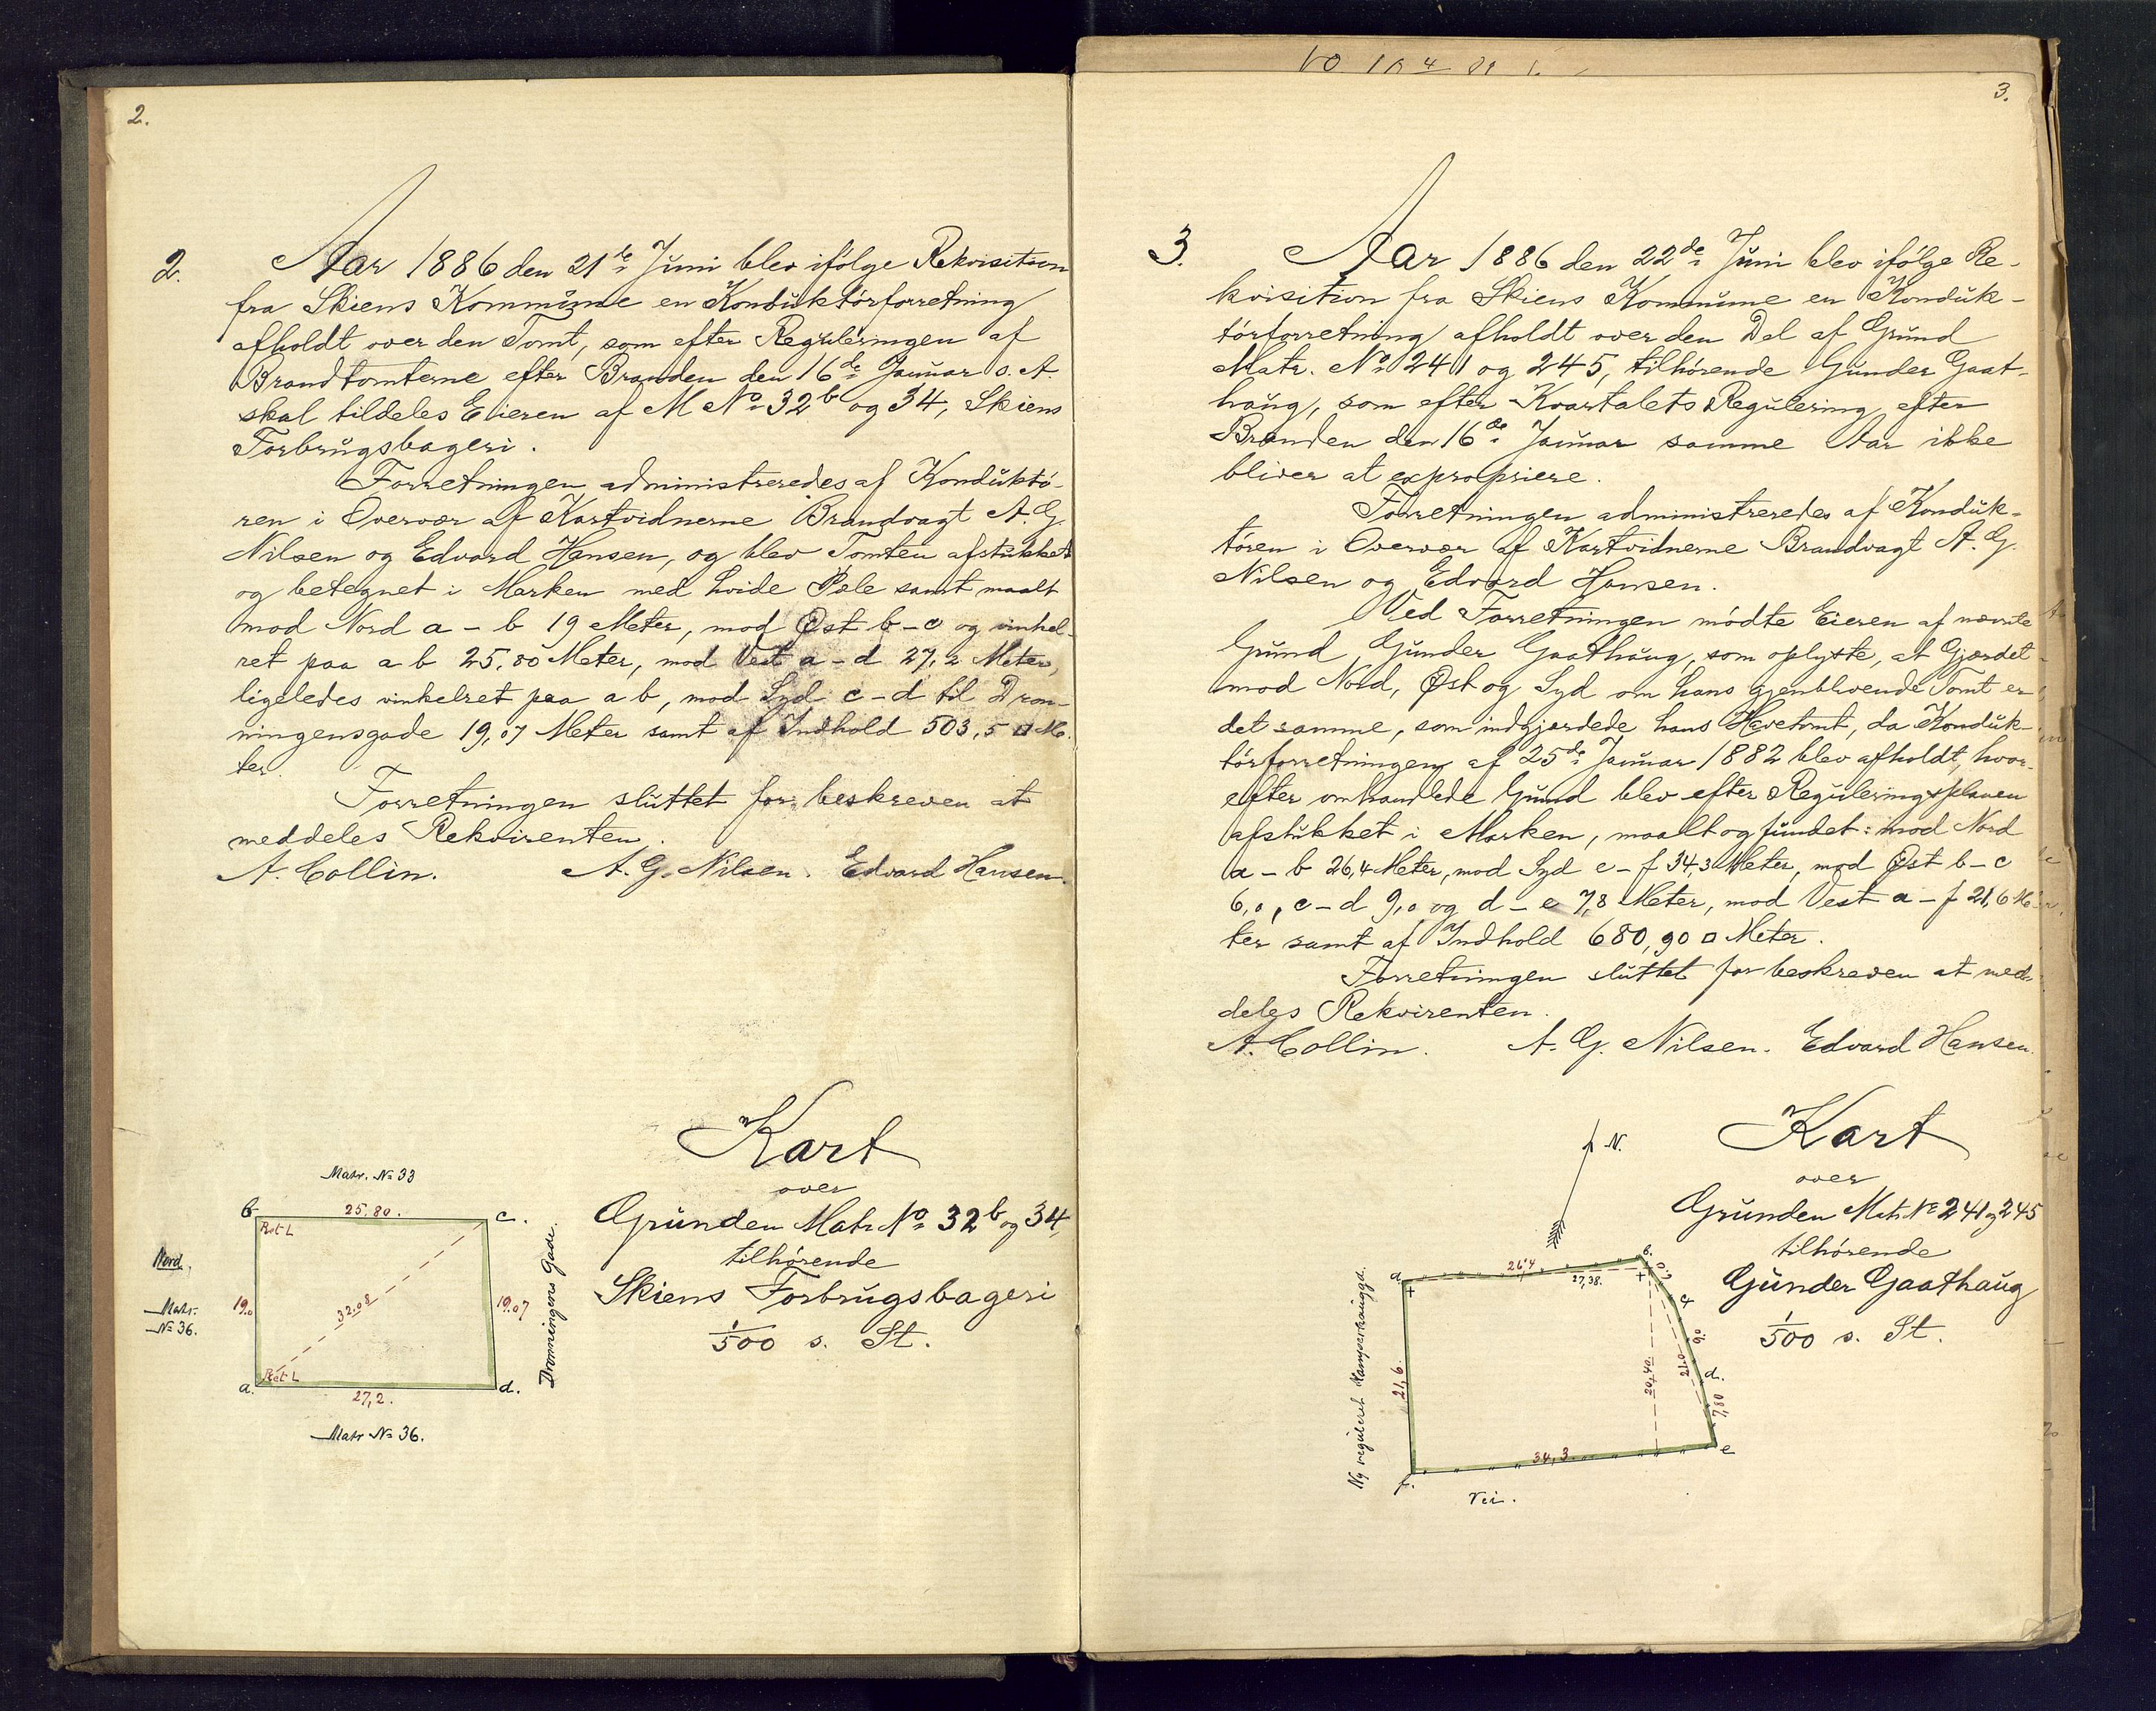 2.
2.
Aar 1886 den 21de Juni blev ifölge Rekvisition
fra Skiens Kommune en Konduktörforretning
afholdt over den Tomt, som efter Reguleringen af
Brandtomterne efter Branden den 16de Januar s. A.
skal tildeles Eieren af M No 32b og 34, Skiens
Forbrugsbageri.
Forretningen administreredes af Konduktö-
ren i Overvær af Kartvidnerne Brandvagt A. G.
Nilsen og Edvard Hansen, og blev Tomten afstukket
og betegnet i Marken med hvide Pæle samt maalt
mod Nord a - b 19 Meter, mod Øst b - c og vinkel-
ret paa a b 25,80 Meter, mod Vest a - d 27,2 Meter,
ligeledes vinkelret paa a b, mod Syd c - d til Dron-
ningensgade 19,07 Meter samt af Indhold 503,5 □ Me-
ter.
Forretningen sluttet for beskreven at
meddeles Rekvirenten.
A. Collin. A. G. Nilsen. Edvard Hansen.
Kart
over
Grunden Matr No 32b og 34
tilhörende
Skiens Forbrugsbageri
1/500 s. St.
Matr. No 33
b 25.80. c.
Ret L
Nord.
Matr.
No 36.
19.0
32.08
19.07
Dronningens Gade.
Ret L
a. 27,2. d.
Matr No 36.
3.
3.
Aar 1886 den 22de Juni blev ifölge Re-
kvisition fra Skiens Kommune en Konduk-
törforretning afholdt over den Del af Grund
Matr. No 241 og 245, tilhörende Gunder Gaat-
haug, som efter Kvartalets Regulering efter
Branden den 16de Januar samme Aar ikke
bliver at expropriere.
Forretningen administreredes af Konduk-
tören i Overvær af Kartvidnerne Brandvagt A. G.
Nilsen og Edvard Hansen.
Ved Forretningen mödte Eieren af nævnte
Grund, Gunder Gaathaug, som oplyste, at Gjærdet
mod Nord, Øst og Syd om hans gjenblivende Tomt er
det samme, som indgjærdede hans Havetomt, da Konduk-
törforretningen af 25de Januar 1882 blev afholdt, hvor-
efter omhandlede Grund blev efter Reguleringsplanen
afstukket i Marken, maalt og fundet: mod Nord
a - b 26,4 Meter, mod Syd e - f 34,3 Meter, mod Øst b - c
6,0, c - d 9,0 og d - e 7,8 Meter, mod Vest a - f 21,6 Me-
ter samt af Indhold 680,90 □ Meter.
Forretningen sluttet for beskreven at med-
deles Rekvirenten.
A. Collin. A. G. Nilsen. Edvard Hansen.
Kart
over
Grunden Matr No 241 og 245
tilhörende
Gunder Gaathaug
1/500 s. St.
N.
a. 26,4 27,38. b.
6,0
c
9,0
21.0
d.
20,40.
7,80
e
21,6.
34,3
f.
Ny reguleret Kampærhauggd.
Vei.